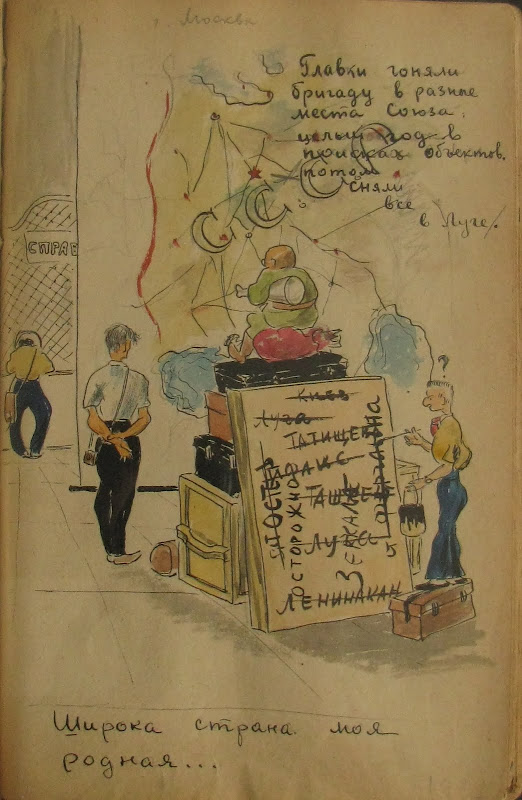 г. Москва
Главки гоняли
бригаду в разные
места Союза,
целый год в
поисках объектов.
потом
сняли
все
в Луге.
СССР
СПРАВ
Киев
Луга
ТАТИЩЕВ
ТАГАНРОГ
Луга
Ленинакан
ОСТОРОЖНО
Зеркало
Широка страна моя
родная...